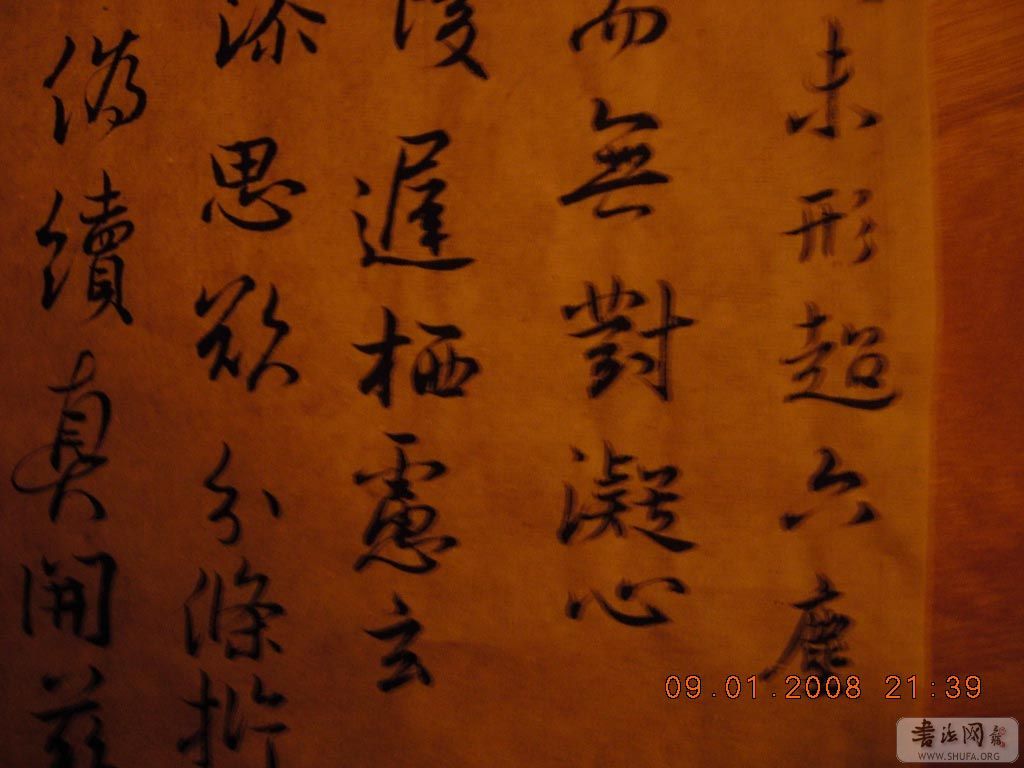 未形超六塵
而無對凝心
遲栖慮玄
思欲分條析
偽續真開茲
09.01.2008 21:39
書法网
WWW.SHUFA.ORG